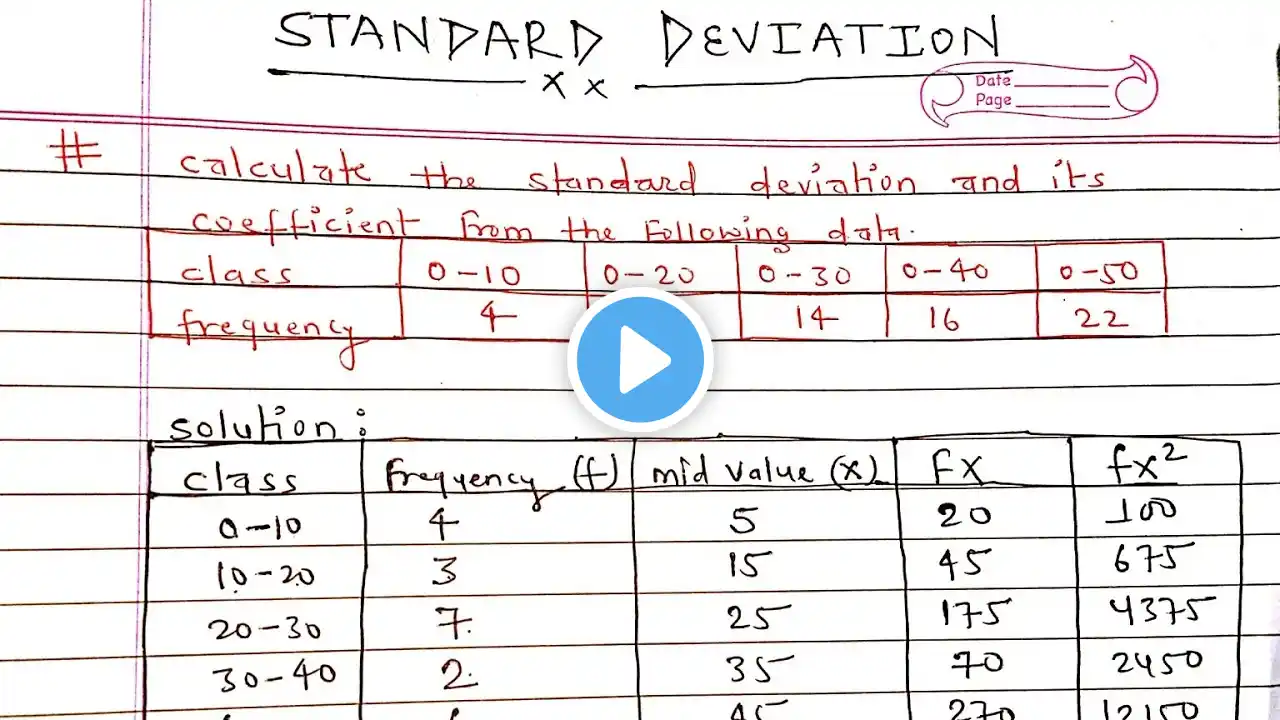 STANDARD DEVIATION
x x
Date
Page
# calculate the standard deviation and its
coefficient from the following data.
class 0-10 0-20 0-30 0-40 0-50
frequency 4 14 16 22
solution:
class frequency (f) mid value (x) FX fx²
0-10 4 5 20 100
10-20 3 15 45 675
20-30 7. 25 175 4375
30-40 2. 35 70 2450
45 270 12150